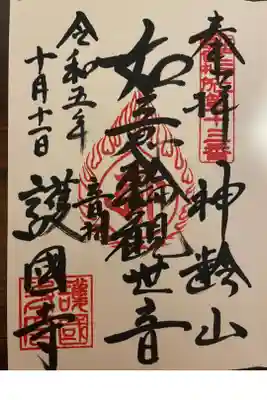 奉拝 神齢山
如意輪觀世音
音羽
護國寺
令和五年
十月十一日